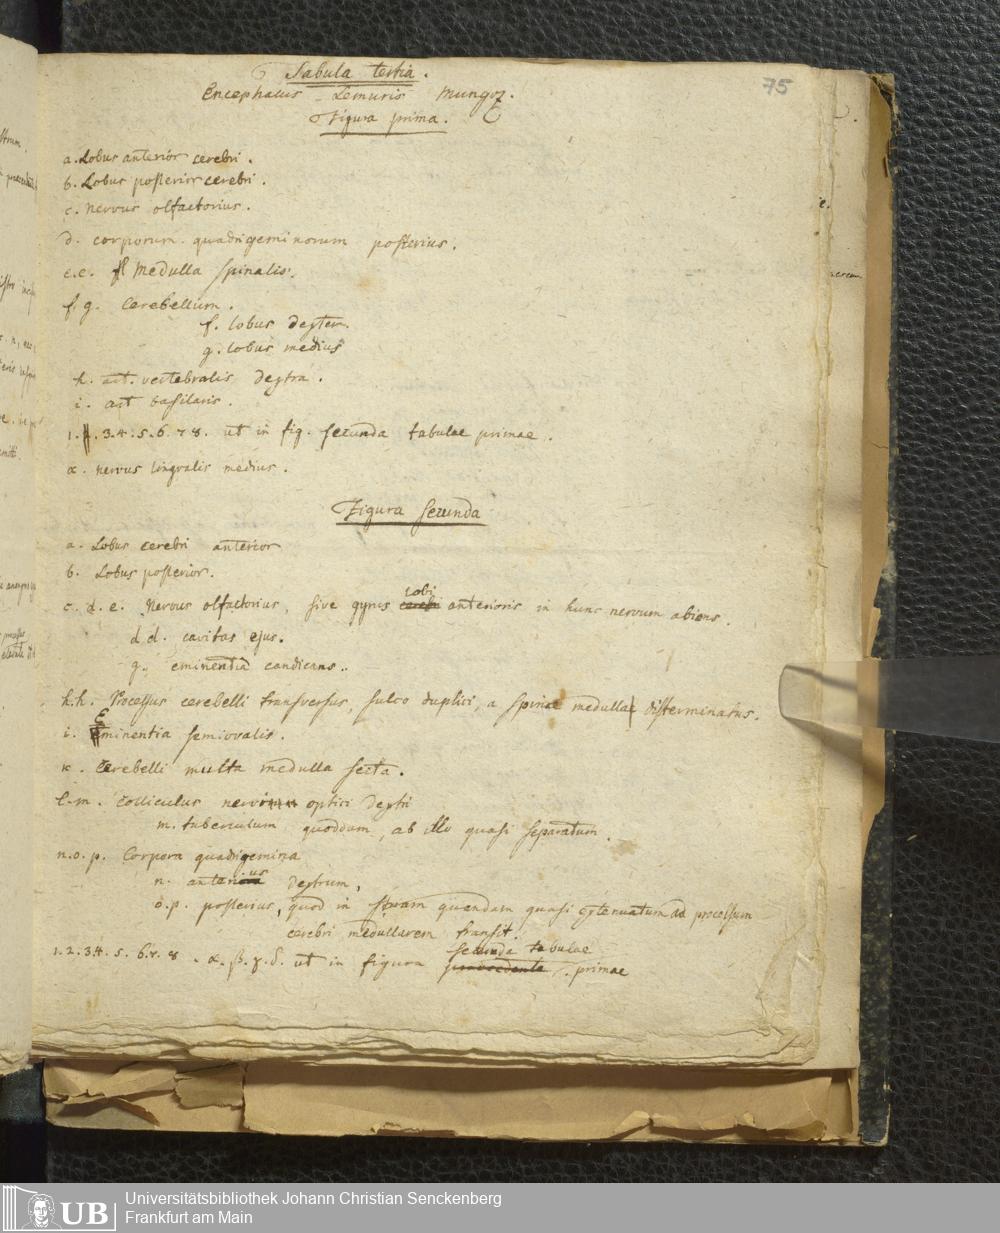 75
Tabula tertia.
Encephalus Lemuris Mungoz.
Figura prima.
a. Lobus anterior cerebri.
b. Lobus posterior cerebri.
c. nervus olfactorius.
d. corporum quadrigeminorum posterius.
e.e. Medulla spinalis.
f. g. Cerebellum.
f. lobus dexter.
g. lobus medius
h. art. vertebralis dextra.
i. art basilaris.
1. 3. 4. 5. 6. 7 8. ut in fig. secunda tabulae primae.
α. nervus lingualis medius.
Figura secunda
a. Lobus cerebri anterior
b. Lobus posterior.
c. d. e. Nervus olfactorius, sive gyrus lobi anterioris in hunc nervum abiens.
d d. cavitas ejus.
g. eminentia candicans.
h.h. Processus cerebelli transversus, sulco duplici, a spinae medulla disterminatus.
i. Eminentia semiovalis.
k. Cerebelli multa medulla secta.
l-m. Colliculus nervi optici dextri
m. tuberculum quoddam, ab illo quasi separatum.
n. o. p. Corpora quadrigemina
n. anterius dextrum,
o.p. posterius, quod in quendam quasi extenuatum ad processum
cerebri medullarem transit.
1. 2. 3. 4. 5. 6. 7. 8. α. β. γ. δ. ut in figura secunda tabulae
primae
UB
Universitätsbibliothek Johann Christian Senckenberg
Frankfurt am Main